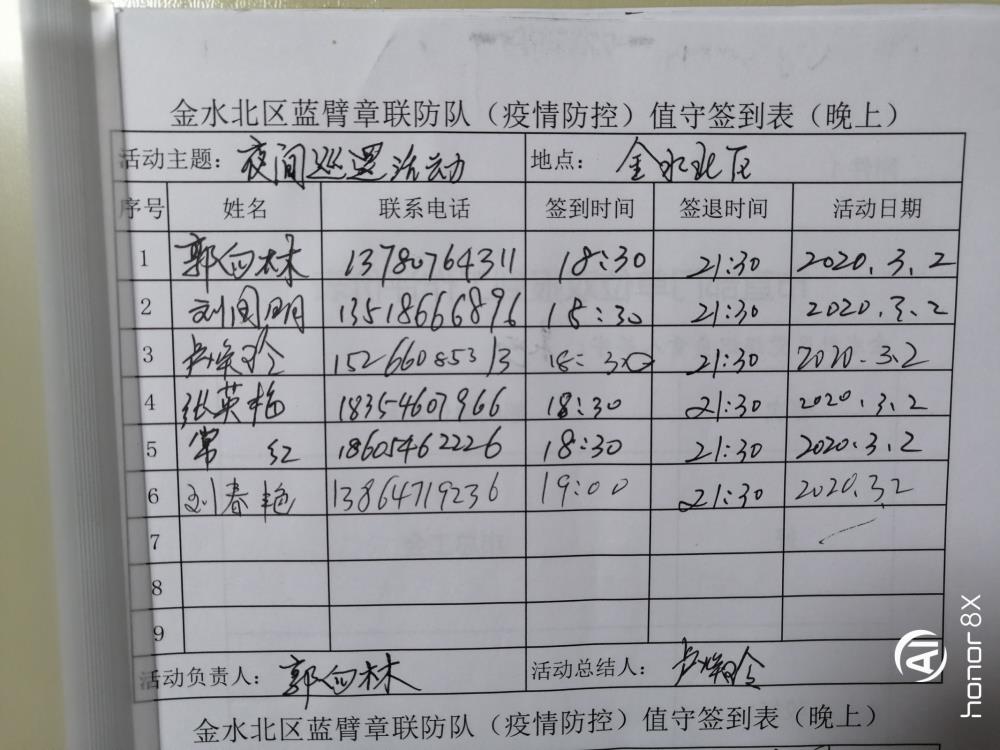 金水北区蓝臂章联防队（疫情防控）值守签到表（晚上）
活动主题：夜间巡逻活动 地点：金水北区
序号 姓名 联系电话 签到时间 签退时间 活动日期
1 郭向林 13780764311 18:30 21:30 2020.3.2
2 刘国明 13518666896 18:30 21:30 2020.3.2
3 15266085313 18:30 21:30 2020.3.2
4 张英艳 18354607966 18:30 21:30 2020.3.2
5 常红 18605462226 18:30 21:30 2020.3.2
6 刘春艳 13864719236 19:00 21:30 2020.3.2
7
8
9
活动负责人：郭向林 活动总结人：
金水北区蓝臂章联防队（疫情防控）值守签到表（晚上）
AI
honor 8X